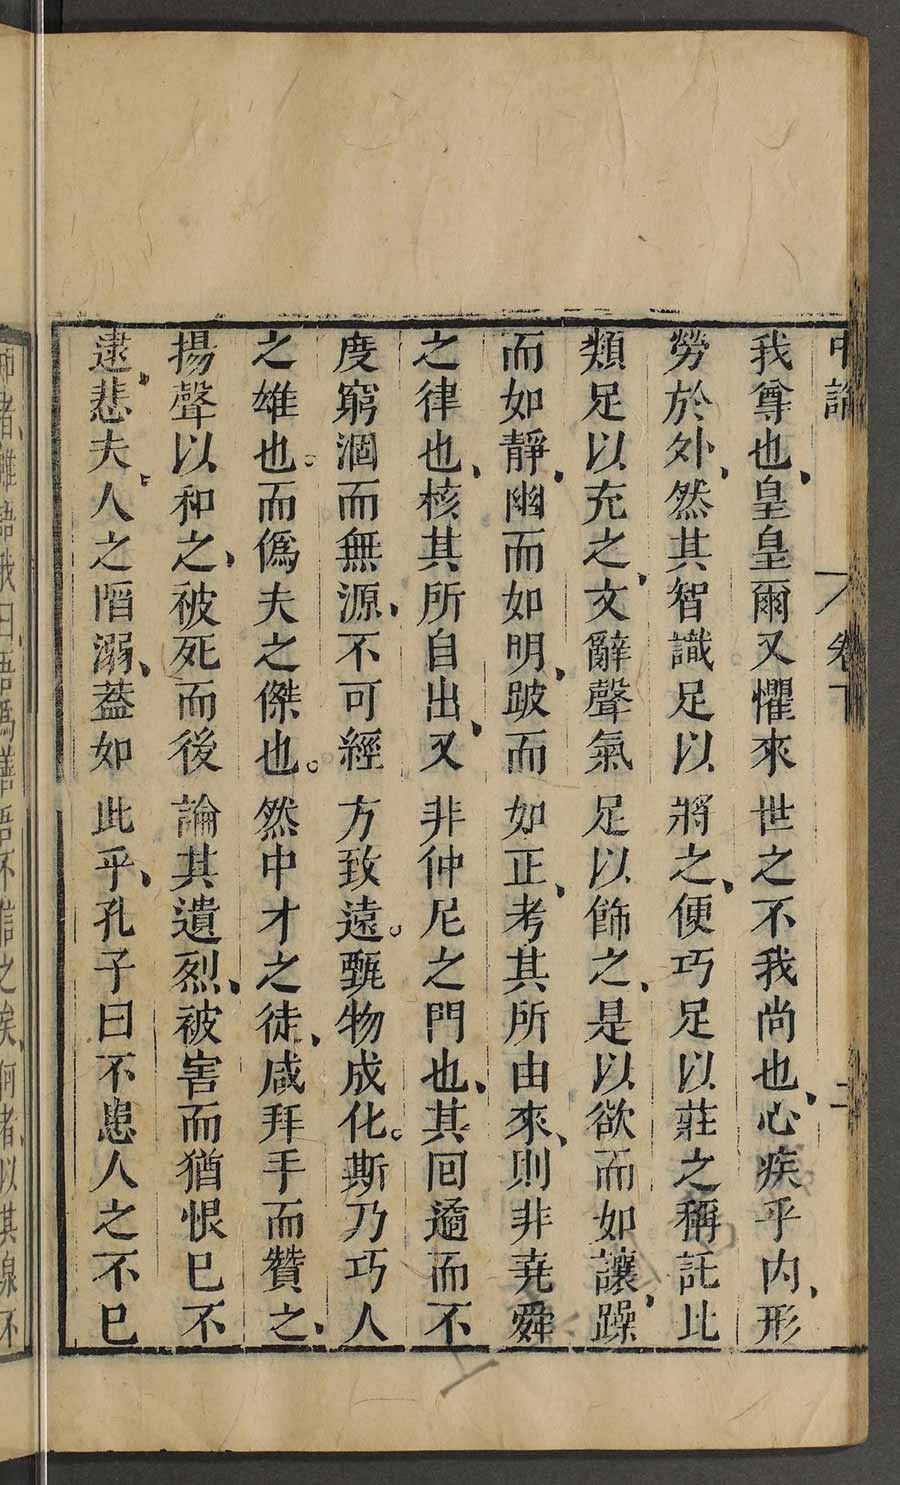 中論 卷下 二
我尊也、皇皇爾又懼來世之不我尚也、心疾乎內、形
勞於外、然其智識足以將之、便巧足以莊之稱託比
類足以充之、文辭聲氣足以飾之、是以欲而如讓、躁
而如靜、幽而如明、跛而如正、考其所由來、則非堯舜
之律也、核其所自出、又非仲尼之門也、其囘遹而不
度窮涸而無源、不可經方致遠。甄物成化。斯乃巧人
之雄也。而僞夫之傑也。然中才之徒、咸拜手而贊之、
揚聲以和之、被死而後論其遺烈、被害而猶恨已不
逮、悲夫、人之陷溺、蓋如此乎、孔子曰不患人之不已